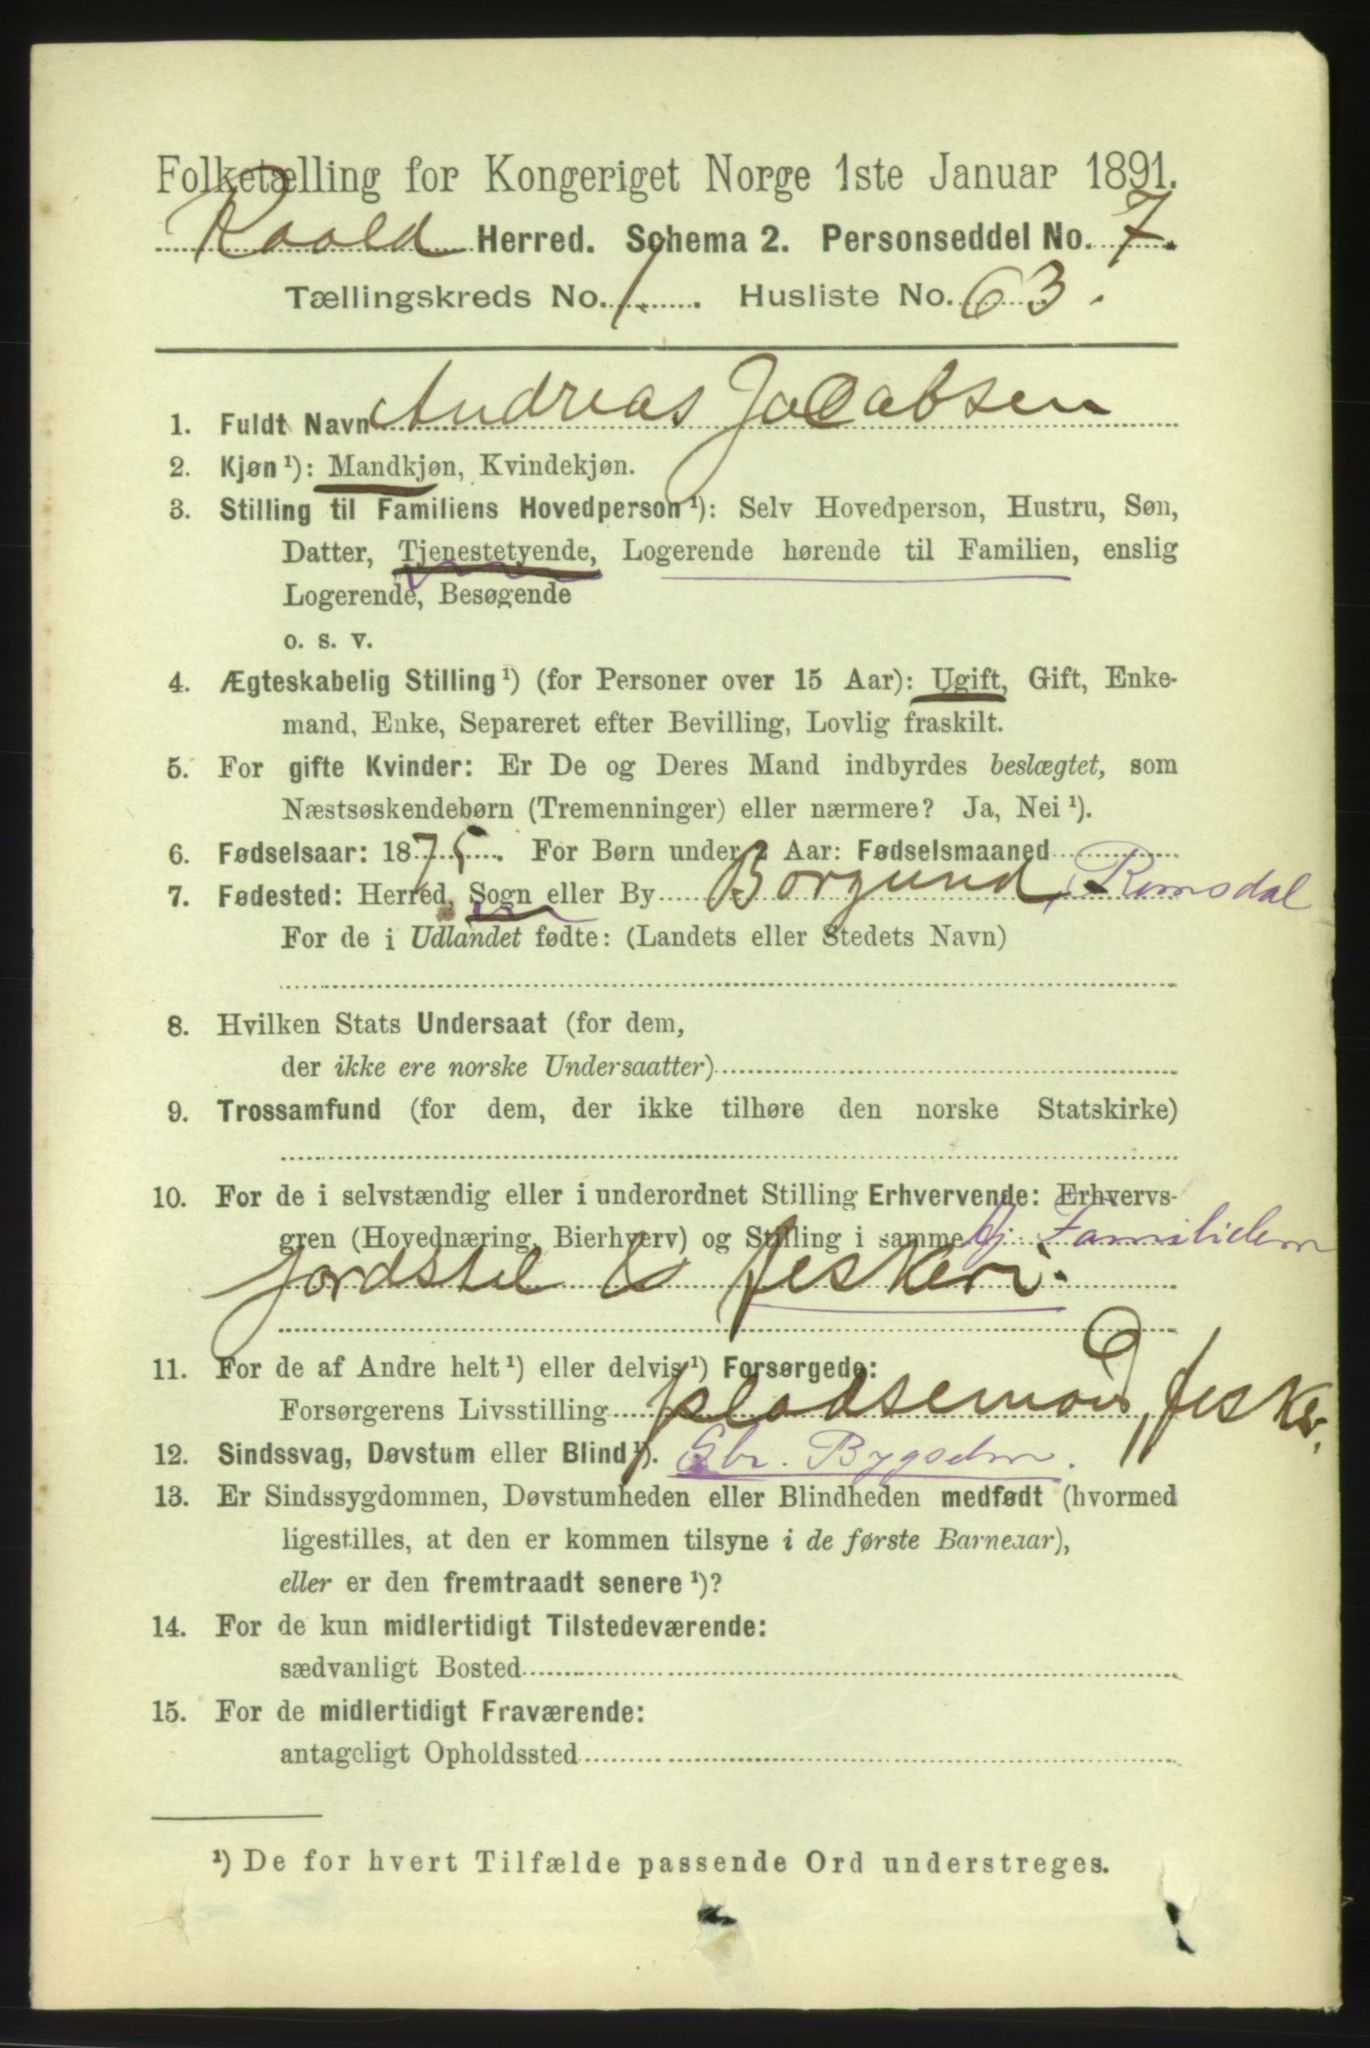 Folketælling for Kongeriget Norge 1ste Januar 1891.
Roald Herred. Schema 2. Personseddel No. 7.
Tællingskreds No. 1. Husliste No. 63.
1. Fuldt Navn Andreas Jacabsen
2. Kjøn ¹): Mandkjøn, Kvindekjøn.
3. Stilling til Familiens Hovedperson ¹): Selv Hovedperson, Hustru, Søn,
Datter, Tjenestetyende, Logerende hørende til Familien, enslig
Logerende, Besøgende
o. s. v.
4. Ægteskabelig Stilling ¹) (for Personer over 15 Aar): Ugift, Gift, Enke-
mand, Enke, Separeret efter Bevilling, Lovlig fraskilt.
5. For gifte Kvinder: Er De og Deres Mand indbyrdes beslægtet, som
Næstsøskendebørn (Tremenninger) eller nærmere? Ja, Nei ¹).
6. Fødselsaar: 1875. For Børn under 2 Aar: Fødselsmaaned
7. Fødested: Herred, Sogn eller By Borgund, Romsdal
For de i Udlandet fødte: (Landets eller Stedets Navn)
8. Hvilken Stats Undersaat (for dem,
der ikke ere norske Undersaatter)
9. Trossamfund (for dem, der ikke tilhøre den norske Statskirke)
10. For de i selvstændig eller i underordnet Stilling Erhvervende: Erhvervs-
gren (Hovednæring, Bierhverv) og Stilling i samme Hj. Familielem
Jordstel & feskeri.
11. For de af Andre helt ¹) eller delvis ¹) Forsørgede:
Forsørgerens Livsstilling pladsemand, fesker,
12. Sindssvag, Døvstum eller Blind ¹).
13. Er Sindssygdommen, Døvstumheden eller Blindheden medfødt (hvormed
ligestilles, at den er kommen tilsyne i de første Barneaar),
eller er den fremtraadt senere ¹)?
14. For de kun midlertidigt Tilstedeværende:
sædvanligt Bosted
15. For de midlertidigt Fraværende:
antageligt Opholdssted
¹) De for hvert Tilfælde passende Ord understreges.